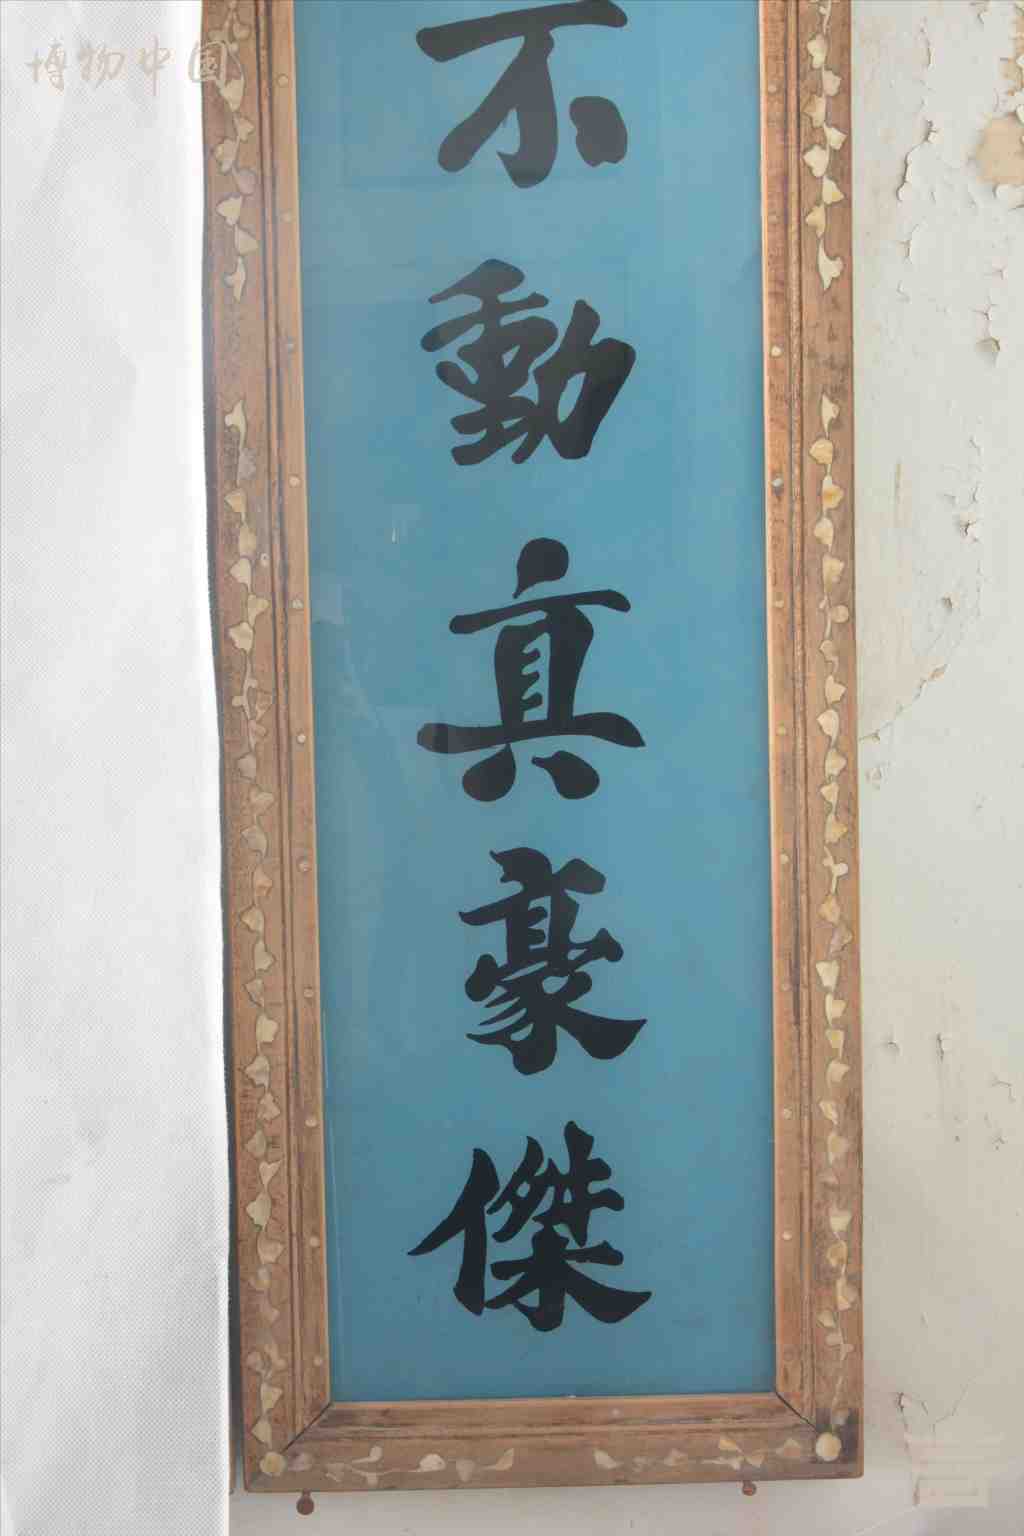 博物中国
不動真豪傑